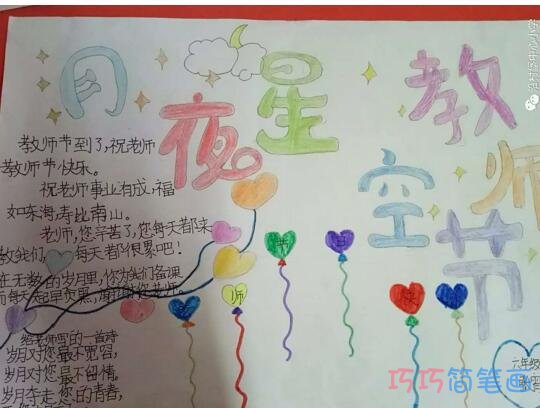 月夜星空
教师节
教师节到了,祝老师
教师节快乐。
祝老师事业有成,福
如东海,寿比南山。
老师,您辛苦了,您每天都来
教我们, 每天都很累吧!
在无数的岁月里,您为我们备课
师
节
日
快
给老师写的一首诗
岁月对您最不宽容,
岁月对您最不留情。
岁月夺走您的青春,
六年级
巧巧简笔画